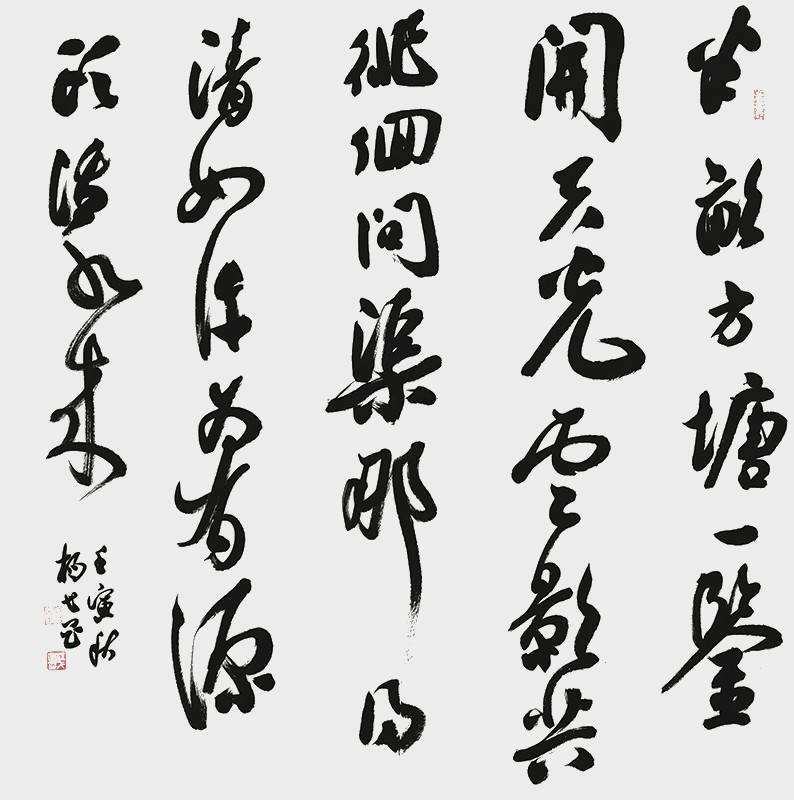 半畝方塘一鑒
開天光雲影共
徘徊問渠那得
清如許為有源
頭活水來
壬寅秋
楊